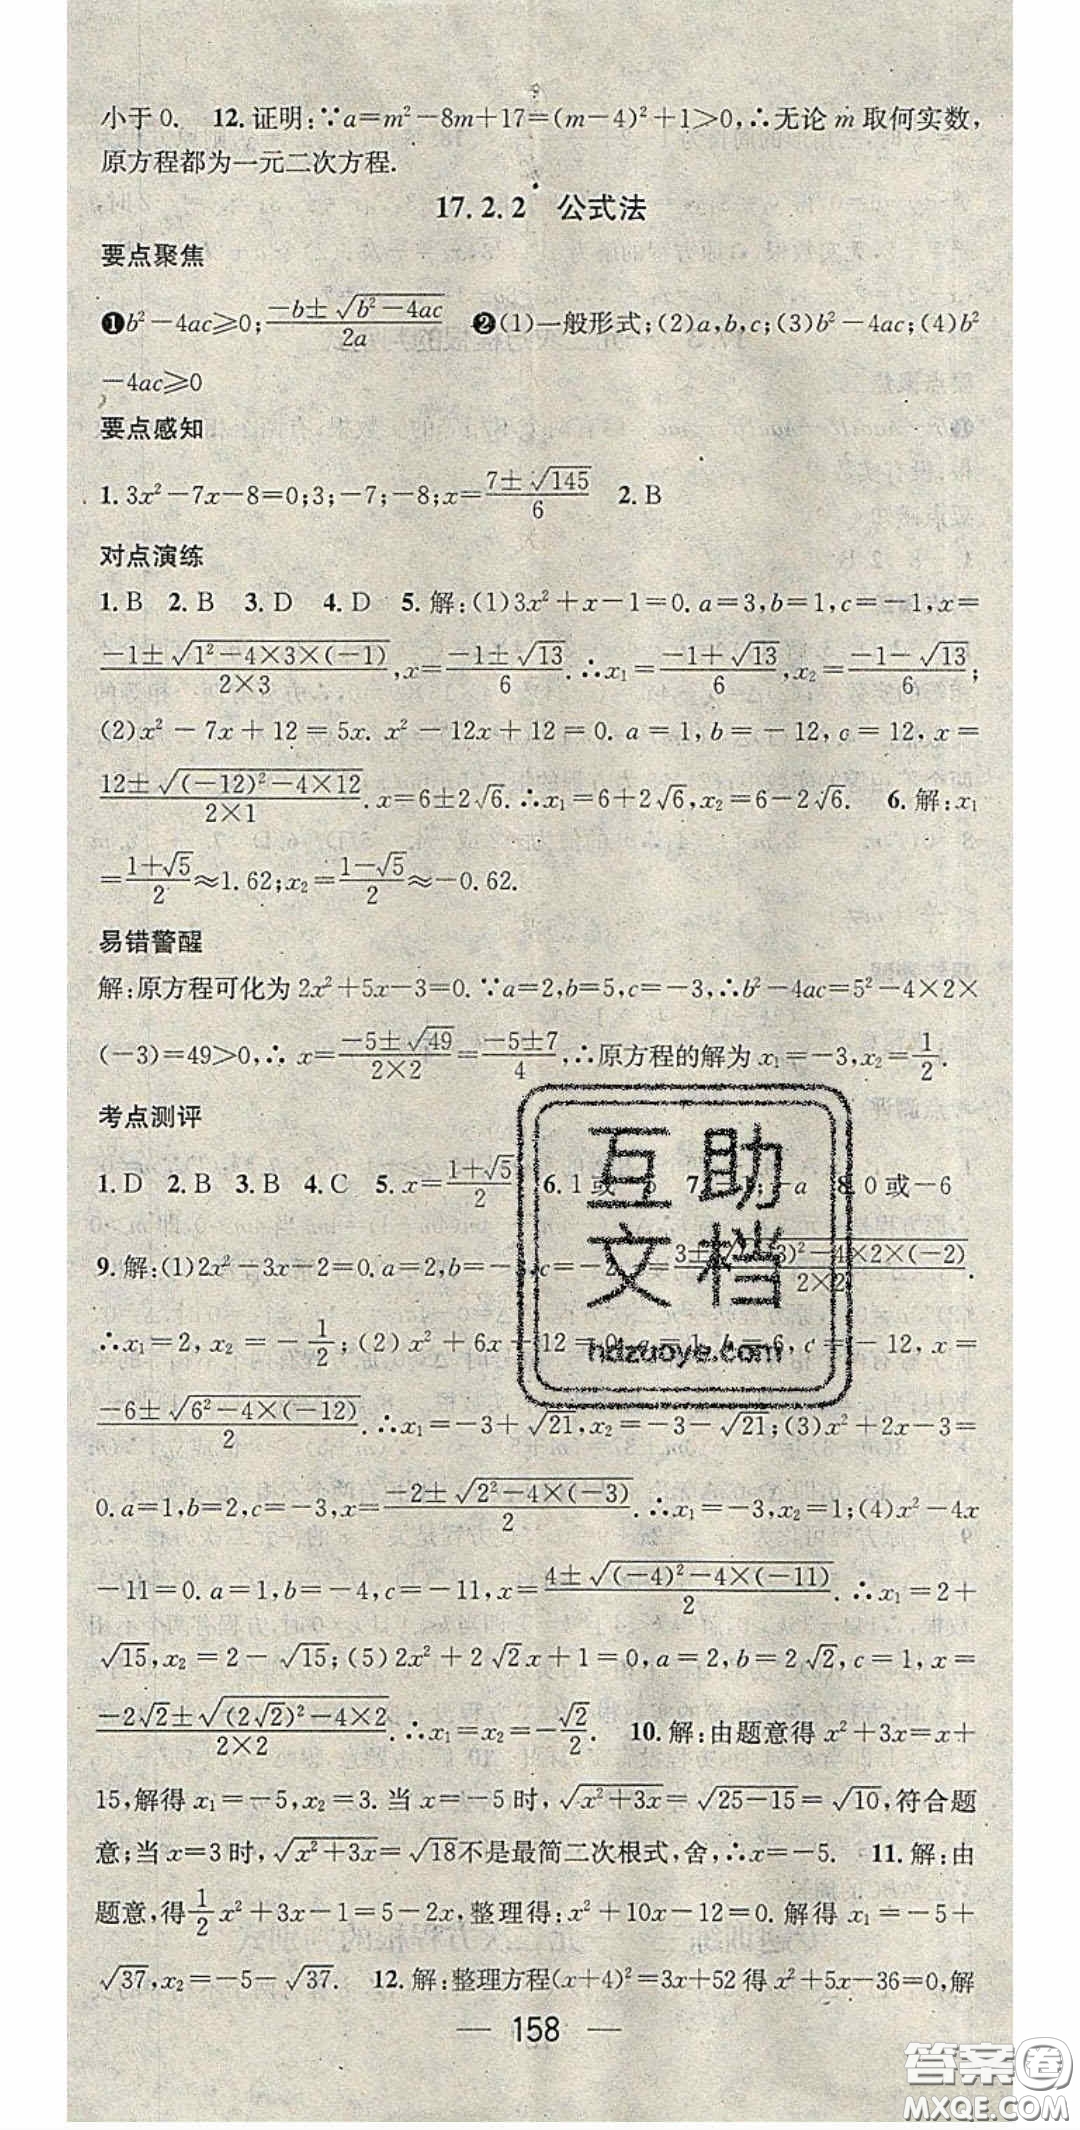 小于0. 12.证明:∵a=m²-8m+17=(m-4)²+1>0,∴无论m取何实数,
原方程都为一元二次方程.
17.2.2 公式法
要点聚焦
❶b²-4ac≥0;(-b±√(b²-4ac))/2a ❷(1)一般形式;(2)a,b,c;(3)b²-4ac;(4)b²
-4ac≥0
要点感知
1.3x²-7x-8=0;3;-7;-8;x=(7±√145)/6 2.B
对点演练
1.B 2.B 3.D 4.D 5.解:(1)3x²+x-1=0.a=3,b=1,c=-1,x=
(-1±√(1²-4×3×(-1)))/(2×3),x=(-1±√13)/6.∴x₁=(-1+√13)/6,x₂=(-1-√13)/6;
(2)x²-7x+12=5x. x²-12x+12=0. a=1,b=-12,c=12,x=
(12±√((-12)²-4×12))/(2×1).x=6±2√6.∴x₁=6+2√6,x₂=6-2√6. 6.解:x₁
=(1+√5)/2≈1.62;x₂=(1-√5)/2≈-0.62.
易错警醒
解:原方程可化为2x²+5x-3=0.∵a=2,b=5,c=-3,∴b²-4ac=5²-4×2×
(-3)=49>0,∴x=(-5±√49)/(2×2)=(-5±7)/4,∴原方程的解为x₁=-3,x₂=1/2.
考点测评
1.D 2.B 3.B 4.C 5.x=(1+√5)/2 6.1或 7. ;-a 8.0或-6
9.解:(1)2x²-3x-2=0.a=2,b=-3,c=-2,x=(3±√((-3)²-4×2×(-2)))/(2×2).
∴x₁=2,x₂=-1/2;(2)x²+6x-12=0,a=1,b=6,c=-12,x=
(-6±√(6²-4×(-12)))/2.∴x₁=-3+√21,x₂=-3-√21;(3)x²+2x-3=
0.a=1,b=2,c=-3,x=(-2±√(2²-4×(-3)))/2.∴x₁=-3,x₂=1;(4)x²-4x
-11=0.a=1,b=-4,c=-11,x=(4±√((-4)²-4×(-11)))/2.∴x₁=2+
√15,x₂=2-√15;(5)2x²+2√2x+1=0,a=2,b=2√2,c=1,x=
(-2√2±√((2√2)²-4×2))/(2×2).∴x₁=x₂=-√2/2. 10.解:由题意得x²+3x=x+
15,解得x₁=-5,x₂=3.当x=-5时,√(x²+3x)=√(25-15)=√10,符合题
意;当x=3时,√(x²+3x)=√18不是最简二次根式,舍,∴x=-5. 11.解:由
题意,得1/2x²+3x-1=5-2x,整理得:x²+10x-12=0.解得x₁=-5+
√37,x₂=-5-√37. 12.解:整理方程(x+4)²=3x+52得x²+5x-36=0,解
— 158 —
互助
文档
hdzuoye.com
答案圈
MXQE.COM